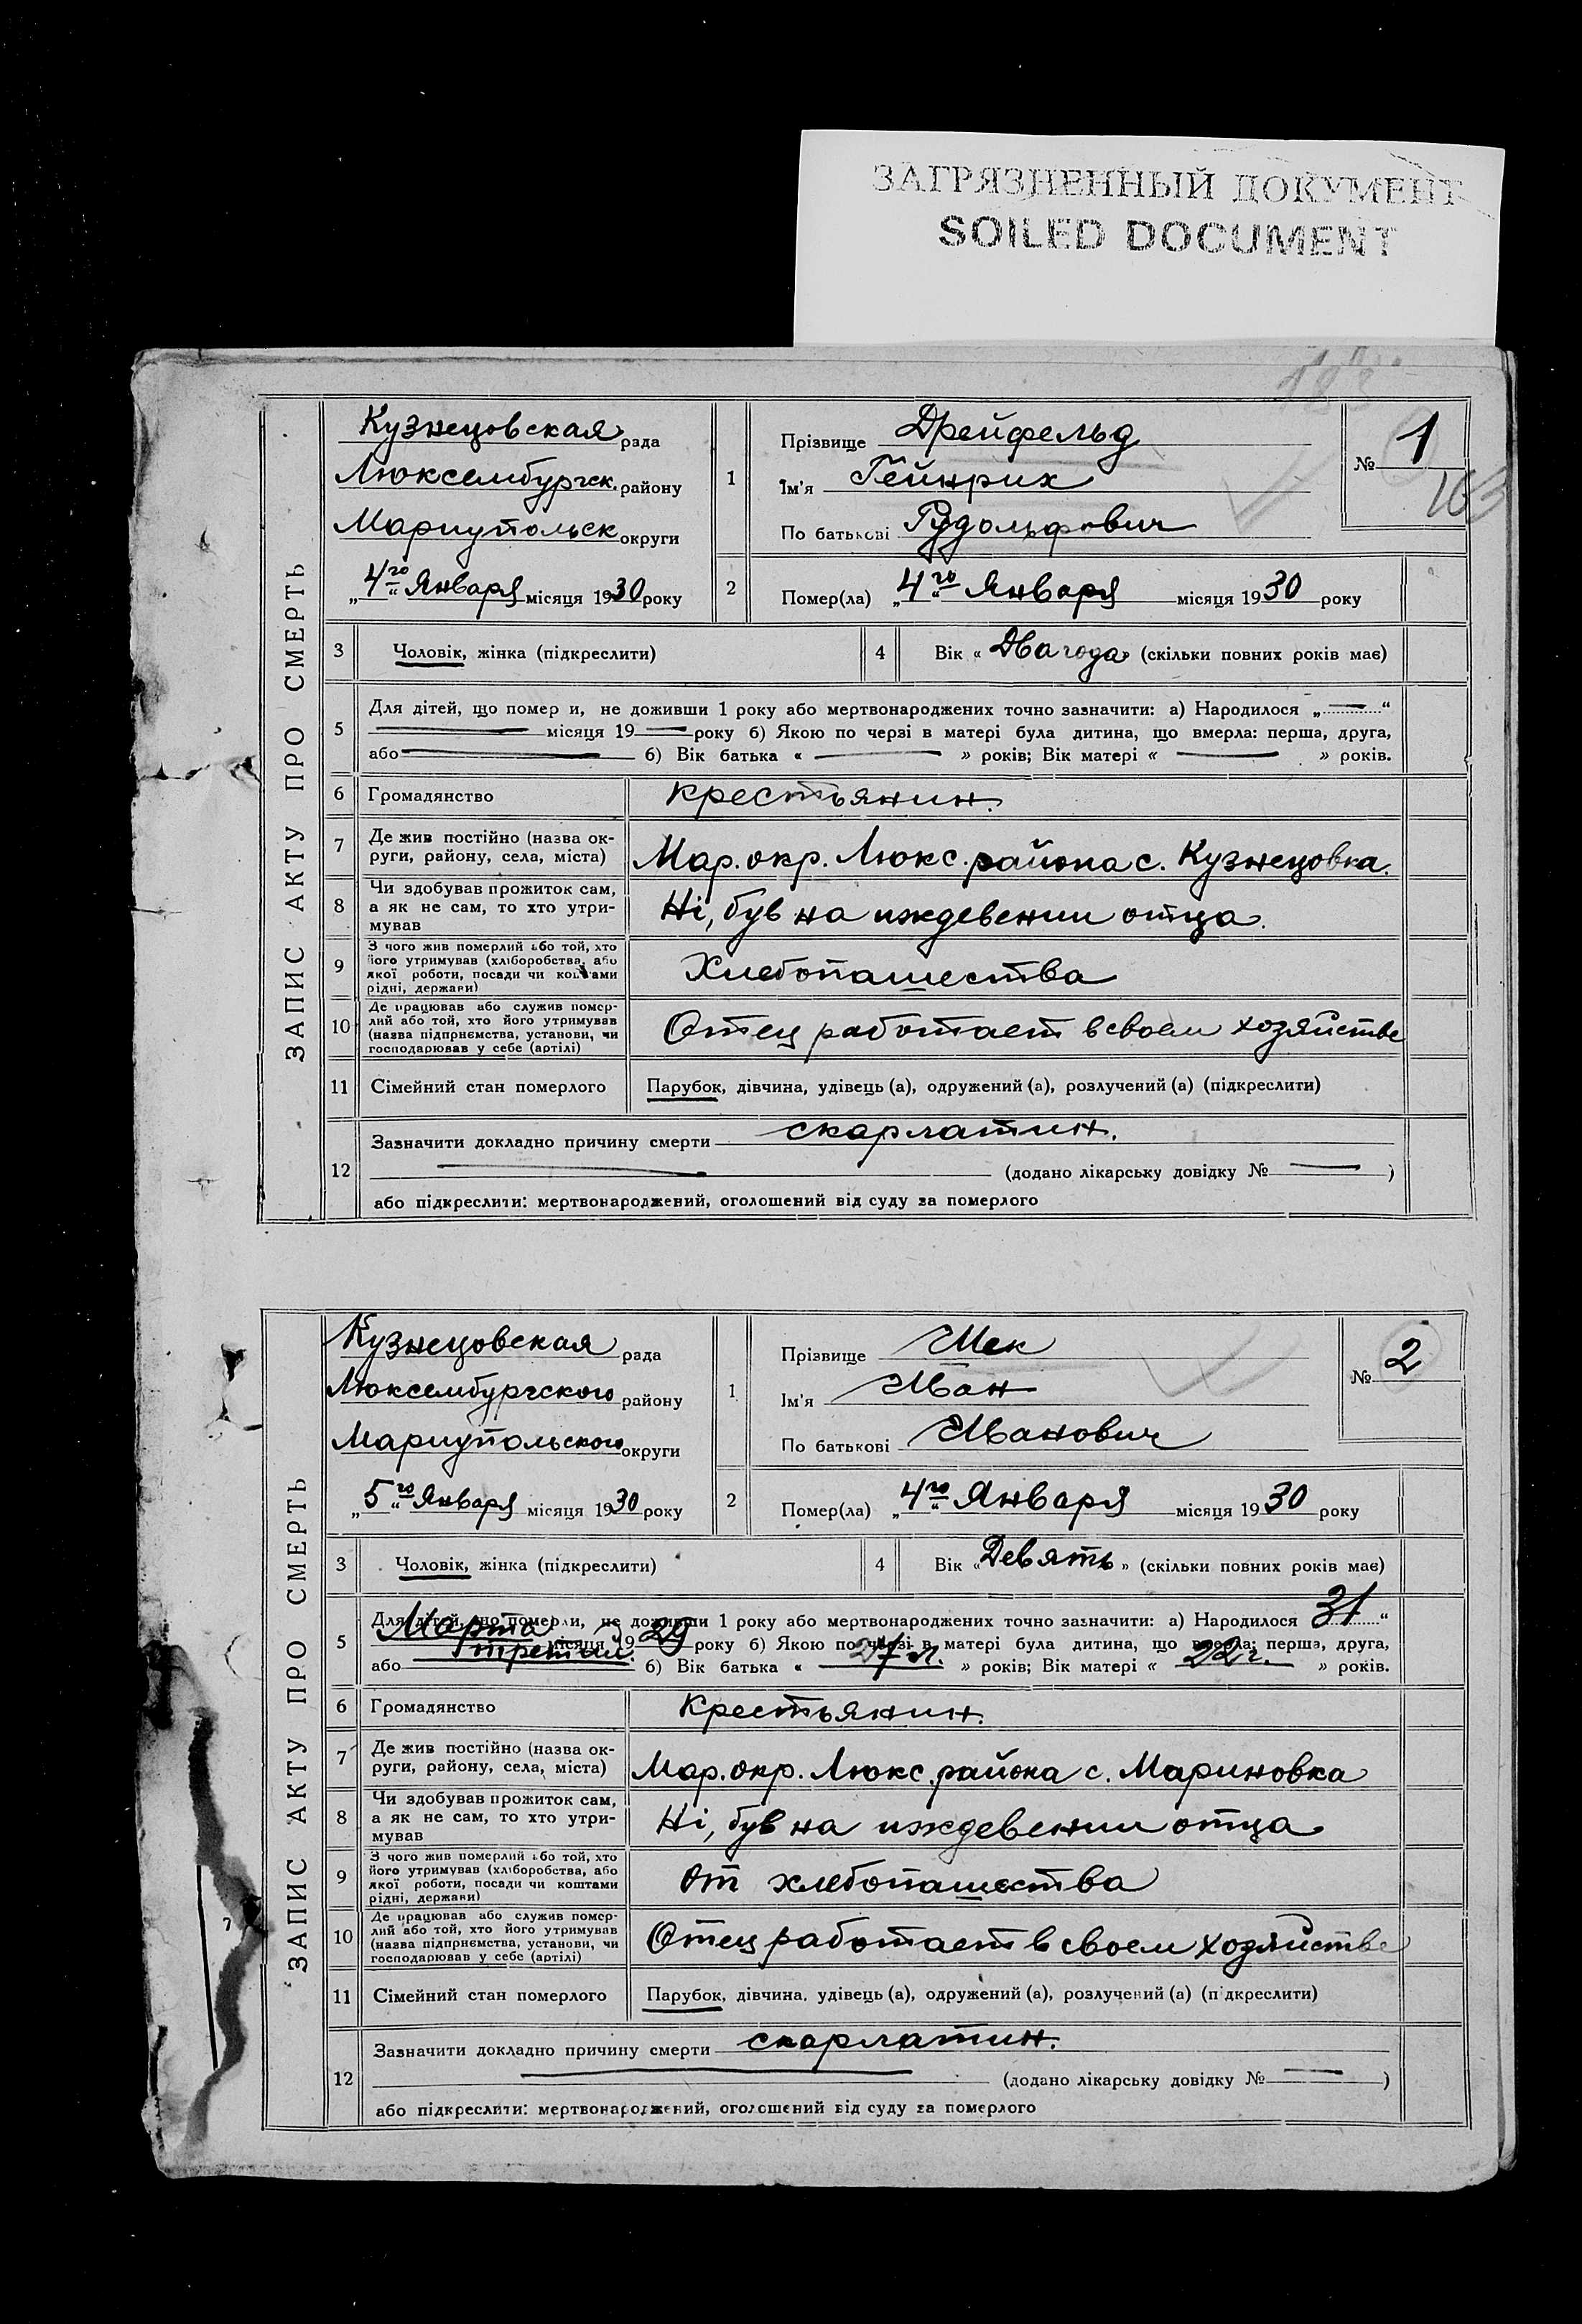 ЗАГРЯЗНЕННЫЙ ДОКУМЕНТ
SOILED DOCUMENT
183
ЗАПИС АКТУ ПРО СМЕРТЬ
Кузнецовская рада
Люксембургск. району
Мариупольск округи
„4го“ Января місяця 1930 року
1
Прізвище Дрейфельд
Ім'я Гейнрих
По батькові Рудольфович
№ 1
163
2
Помер(ла) „4го“ Января місяця 1930 року
3 Чоловік, жінка (підкреслити)
4 Вік «Два года» (скільки повних років має)
5 Для дітей, що помер и, не доживши 1 року або мертвонароджених точно зазначити: а) Народилося „—“
— місяця 19— року б) Якою по черзі в матері була дитина, що вмерла: перша, друга,
або — б) Вік батька « — » років; Вік матері « — » років.
6 Громадянство крестьянин.
7 Де жив постійно (назва ок-
руги, району, села, міста) Мар. окр. Люкс. района с. Кузнецовка.
8 Чи здобував прожиток сам,
а як не сам, то хто утри-
мував Ні, був на иждевении отца.
9 З чого жив померлий або той, хто
його утримував (хліборобства, або
якої роботи, посади чи коштами
рідні, держави) Хлебопашества
10 Де працював або служив помер-
лий або той, хто його утримував
(назва підприємства, установи, чи
господарював у себе (артілі) Отец работает в своем хозяйстве
11 Сімейний стан померлого Парубок, дівчина, удівець (а), одружений (а), розлучений (а) (підкреслити)
12 Зазначити докладно причину смерти скарлатин.
— (додано лікарську довідку № — )
або підкреслити: мертвонароджений, оголошений від суду за померлого
ЗАПИС АКТУ ПРО СМЕРТЬ
Кузнецовская рада
Люксембургского району
Мариупольского округи
„5го“ Января місяця 1930 року
1
Прізвище Мек
Ім'я Иван
По батькові Иванович
№ 2
2
Помер(ла) „4го“ Января місяця 1930 року
3 Чоловік, жінка (підкреслити)
4 Вік «Девять» (скільки повних років має)
5 Для дітей, що померли, не доживши 1 року або мертвонароджених точно зазначити: а) Народилося 31“
Марта місяця 1929 року б) Якою по черзі в матері була дитина, що вмерла: перша, друга,
або третья. б) Вік батька « 27 л. » років; Вік матері « 22 г. » років.
6 Громадянство крестьянин.
7 Де жив постійно (назва ок-
руги, району, села, міста) Мар. окр. Люкс. района с. Мариновка
8 Чи здобував прожиток сам,
а як не сам, то хто утри-
мував Ні, був на иждевении отца
9 З чого жив померлий або той, хто
його утримував (хліборобства, або
якої роботи, посади чи коштами
рідні, держави) От хлебопашества
10 Де працював або служив помер-
лий або той, хто його утримував
(назва підприємства, установи, чи
господарював у себе (артілі) Отец работает в своем хозяйстве
11 Сімейний стан померлого Парубок, дівчина, удівець (а), одружений (а), розлучений (а) (підкреслити)
12 Зазначити докладно причину смерти скарлатин.
— (додано лікарську довідку № — )
або підкреслити: мертвонароджений, оголошений від суду за померлого
7